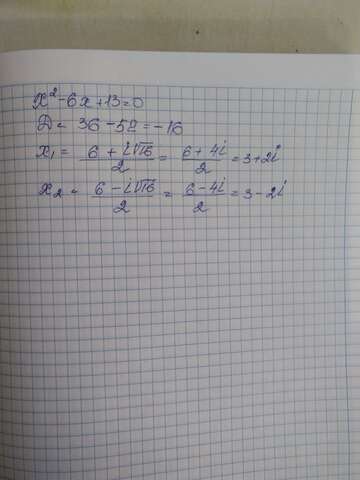 x² - 6x + 13 = 0
D = 36 - 52 = -16
x₁ = (6 + i√16)/2 = (6 + 4i)/2 = 3 + 2i
x₂ = (6 - i√16)/2 = (6 - 4i)/2 = 3 - 2i